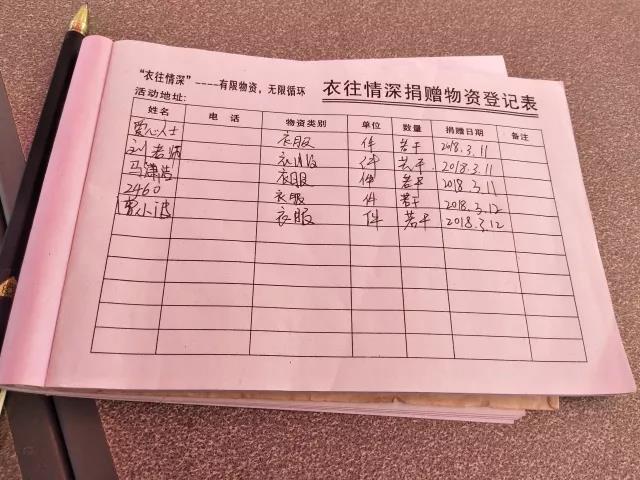 “衣往情深”-----有限物资，无限循环 衣往情深捐赠物资登记表
活动地址：
姓名 电话 物资类别 单位 数量 捐赠日期 备注
爱心人士 衣服 件 若干 2018.3.11
刘老师 衣服 件 若干 2018.3.11
马 衣服 件 若干 2018.3.11
2460 衣服 件 若干 2018.3.12
小 衣服 件 若干 2018.3.12